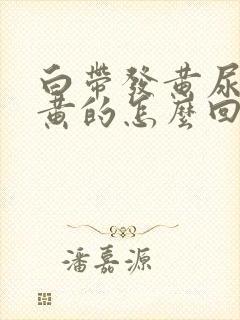 白帶發黄尿
黄的怎麼回
潘嘉源